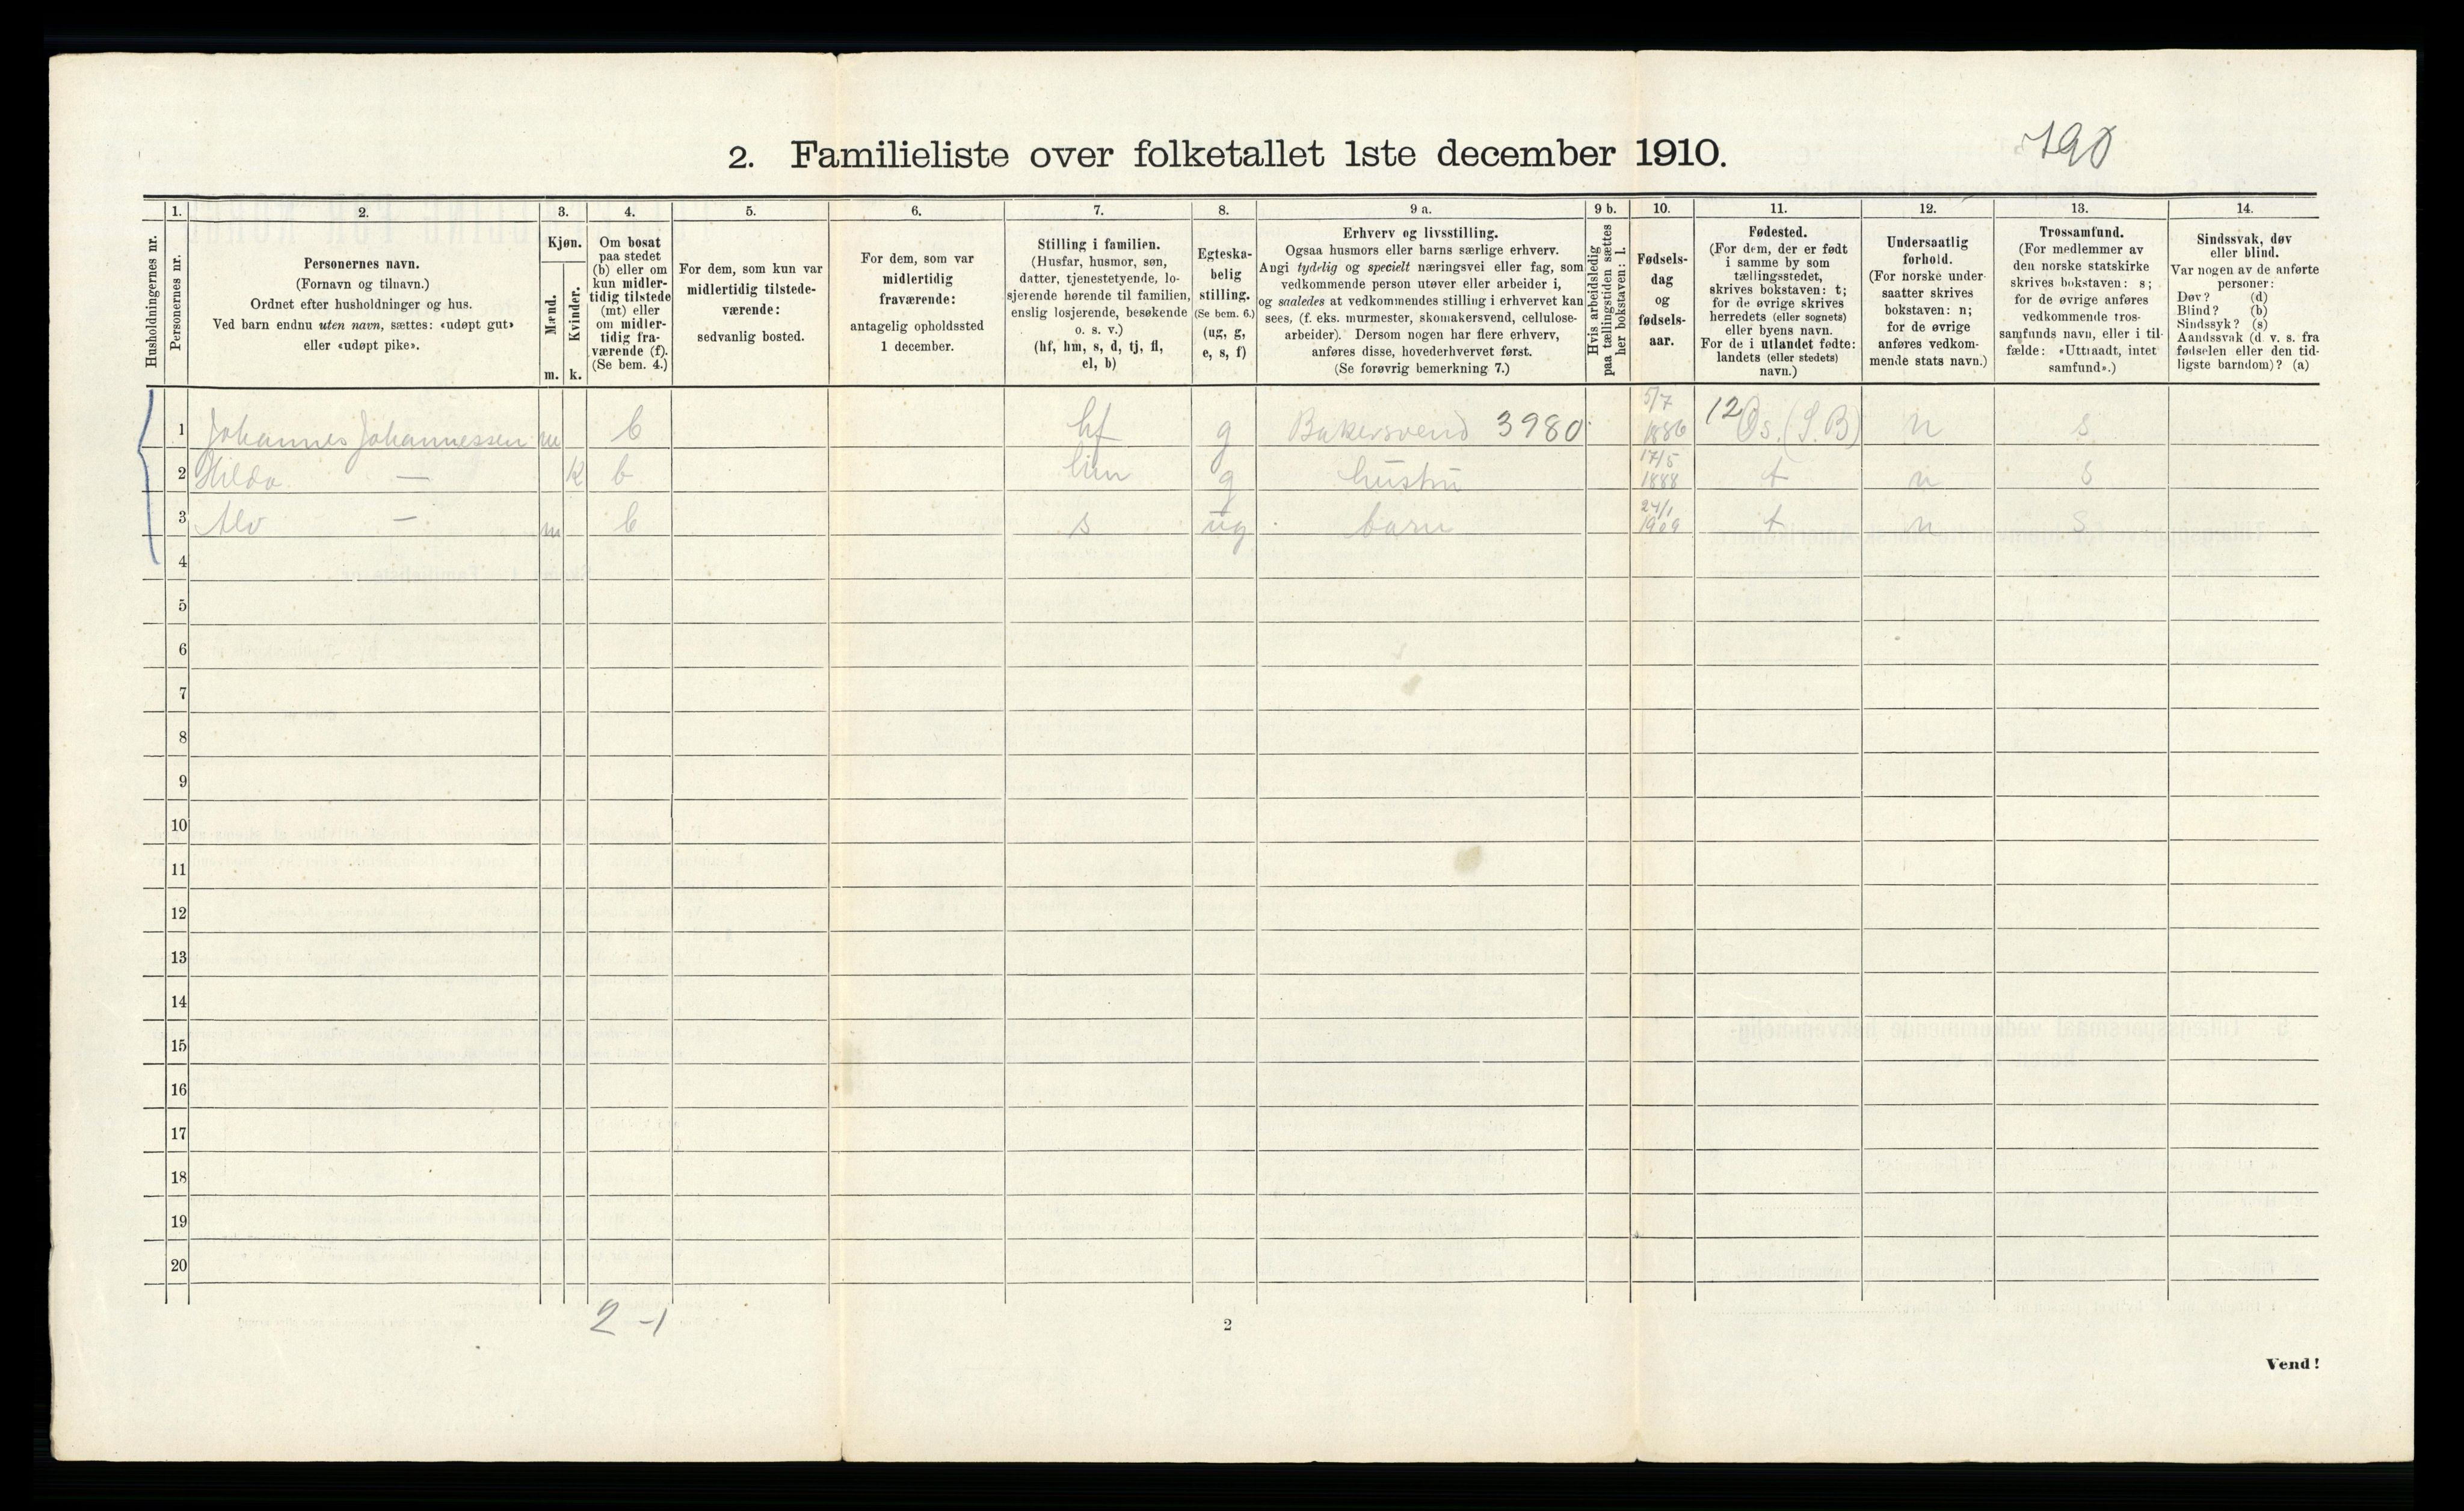 2. Familieliste over folketallet 1ste december 1910.
1.
2.
3.
4.
5.
6.
7.
8.
9 a.
9 b.
10.
11.
12.
13.
14.
Husholdningernes nr.
Personernes nr.
Personernes navn.
(Fornavn og tilnavn.)
Ordnet efter husholdninger og hus.
Ved barn endnu uten navn, sættes: «udøpt gut»
eller «udøpt pike».
Kjøn.
Mænd.
m.
Kvinder.
k.
Om bosat
paa stedet
(b) eller om
kun midler-
tidig tilstede
(mt) eller
om midler-
tidig fra-
værende (f).
(Se bem. 4.)
For dem, som kun var
midlertidig tilstede-
værende:
sedvanlig bosted.
For dem, som var
midlertidig
fraværende:
antagelig opholdssted
1 december.
Stilling i familien.
(Husfar, husmor, søn,
datter, tjenestetyende, lo-
sjerende hørende til familien,
enslig losjerende, besøkende
o. s. v.)
(hf, hm, s, d, tj, fl,
el, b)
Egteska-
belig
stilling.
(Se bem. 6.)
(ug, g,
e, s, f)
Erhverv og livsstilling.
Ogsaa husmors eller barns særlige erhverv.
Angi tydelig og specielt næringsvei eller fag, som
vedkommende person utøver eller arbeider i,
og saaledes at vedkommendes stilling i erhvervet kan
sees, (f. eks. murmester, skomakersvend, cellulose-
arbeider). Dersom nogen har flere erhverv,
anføres disse, hovederhvervet først.
(Se forøvrig bemerkning 7.)
Hvis arbeidsledig
paa tællingstiden sættes
her bokstaven: l.
Fødsels-
dag
og
fødsels-
aar.
Fødested.
(For dem, der er født
i samme by som
tællingsstedet,
skrives bokstaven: t;
for de øvrige skrives
herredets (eller sognets)
eller byens navn.
For de i utlandet fødte:
landets (eller stedets)
navn.)
Undersaatlig
forhold.
(For norske under-
saatter skrives
bokstaven: n;
for de øvrige
anføres vedkom-
mende stats navn.)
Trossamfund.
(For medlemmer av
den norske statskirke
skrives bokstaven: s;
for de øvrige anføres
vedkommende tros-
samfunds navn, eller i til-
fælde: «Uttraadt, intet
samfund».)
Sindssvak, døv
eller blind.
Var nogen av de anførte
personer:
Døv? (d)
Blind? (b)
Sindssyk? (s)
Aandssvak (d. v. s. fra
fødselen eller den tid-
ligste barndom)? (a)
1 Johannes Johannessen m b hf g Bakersvend 3980 5/7 1886 12 Os. (S.B) n s
2 Hilda — k b hm g hustru 17/5 1888 t n s
3 Alv — m b s ug barn 24/1 1909 t n s
4
5
6
7
8
9
10
11
12
13
14
15
16
17
18
19
20
2 -1
2
Vend!